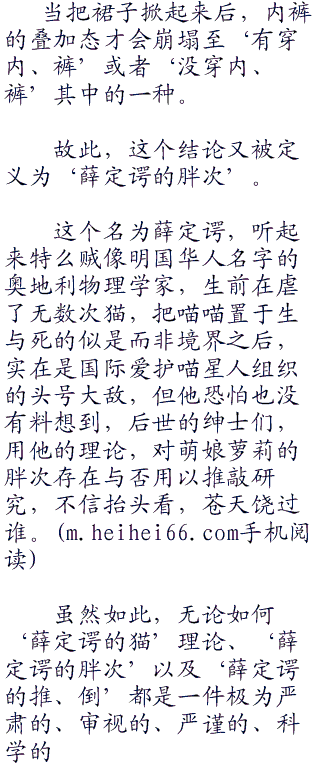 当把裙子掀起来后，内裤
的叠加态才会崩塌至‘有穿
内、裤’或者‘没穿内、
裤’其中的一种。
故此，这个结论又被定
义为‘薛定谔的胖次’。
这个名为薛定谔，听起
来特么贼像明国华人名字的
奥地利物理学家，生前在虐
了无数次猫，把喵喵置于生
与死的似是而非境界之后，
实在是国际爱护喵星人组织
的头号大敌，但他恐怕也没
有料想到，后世的绅士们，
用他的理论，对萌娘萝莉的
胖次存在与否用以推敲研
究，不信抬头看，苍天饶过
谁。(m.heihei66.com手机阅
读)
虽然如此，无论如何
‘薛定谔的猫’理论、‘薛
定谔的胖次’以及‘薛定谔
的推、倒’都是一件极为严
肃的、审视的、严谨的、科
学的